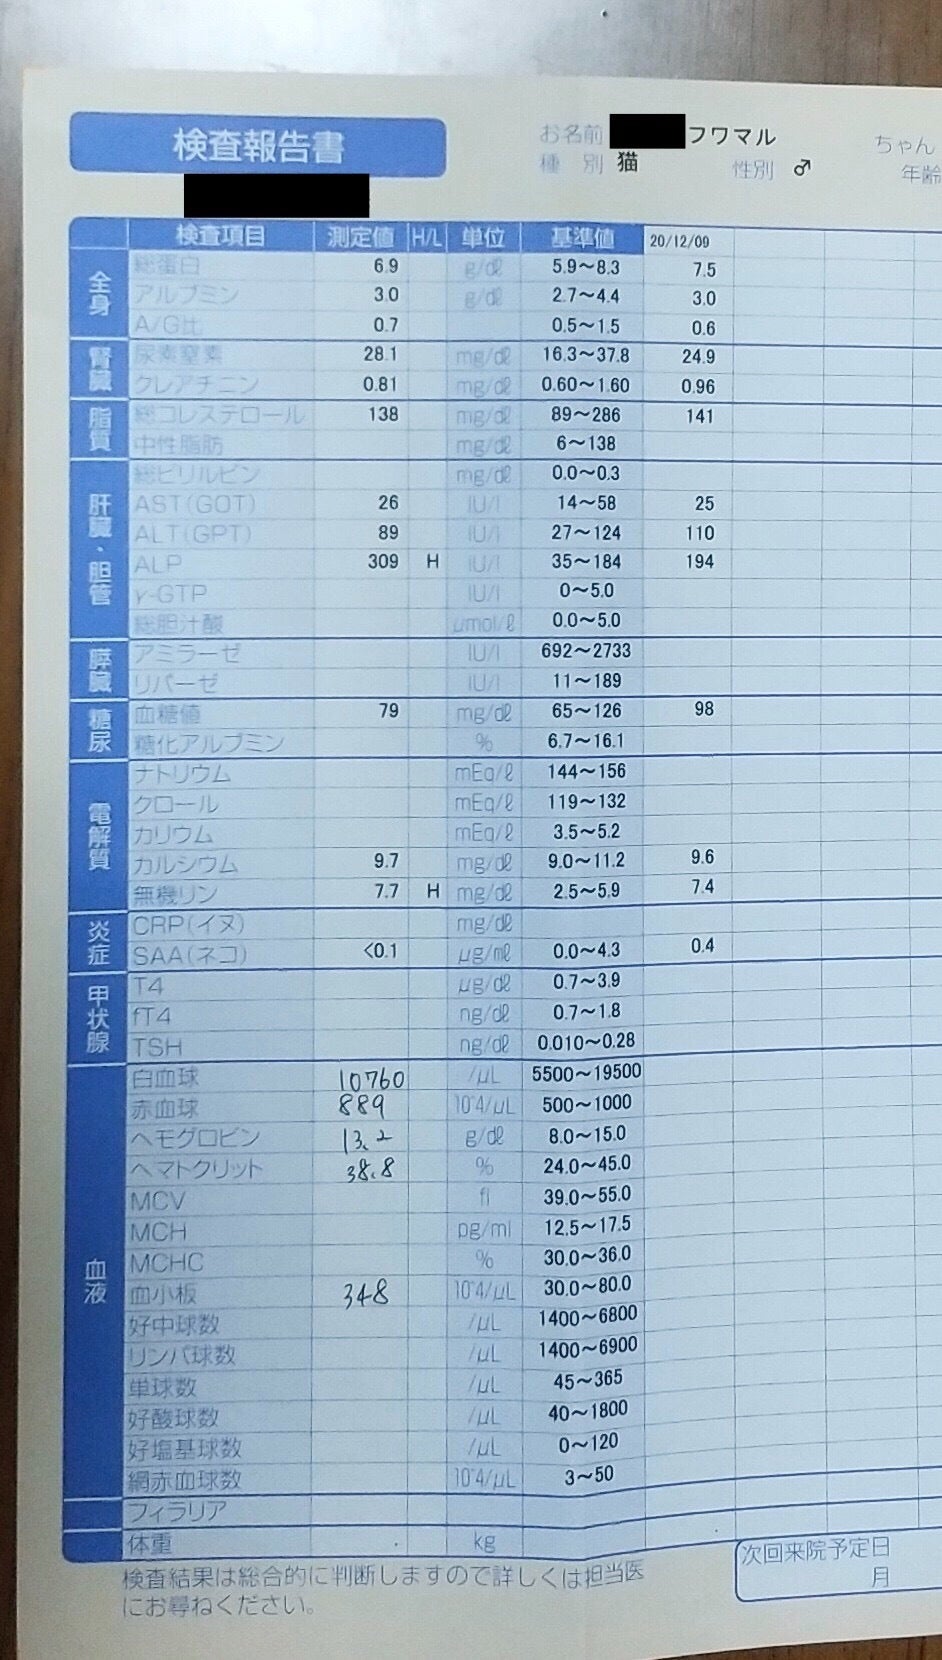 検査報告書
お名前 フワマル ちゃん
種別 猫 性別 ♂ 年齢
検査項目 測定値 H/L 単位 基準値 20/12/09
全身
総蛋白 6.9 g/dℓ 5.9〜8.3 7.5
アルブミン 3.0 g/dℓ 2.7〜4.4 3.0
A/G比 0.7 0.5〜1.5 0.6
腎臓
尿素窒素 28.1 mg/dℓ 16.3〜37.8 24.9
クレアチニン 0.81 mg/dℓ 0.60〜1.60 0.96
脂質
総コレステロール 138 mg/dℓ 89〜286 141
中性脂肪 mg/dℓ 6〜138
肝臓・胆管
総ビリルビン mg/dℓ 0.0〜0.3
AST(GOT) 26 IU/l 14〜58 25
ALT(GPT) 89 IU/l 27〜124 110
ALP 309 H IU/l 35〜184 194
γ-GTP IU/l 0〜5.0
総胆汁酸 μmol/ℓ 0.0〜5.0
膵臓
アミラーゼ IU/l 692〜2733
リパーゼ IU/l 11〜189
糖尿
血糖値 79 mg/dℓ 65〜126 98
糖化アルブミン % 6.7〜16.1
電解質
ナトリウム mEq/ℓ 144〜156
クロール mEq/ℓ 119〜132
カリウム mEq/ℓ 3.5〜5.2
カルシウム 9.7 mg/dℓ 9.0〜11.2 9.6
無機リン 7.7 H mg/dℓ 2.5〜5.9 7.4
炎症
CRP(イヌ) mg/dℓ
SAA(ネコ) <0.1 μg/mℓ 0.0〜4.3 0.4
甲状腺
T4 μg/dℓ 0.7〜3.9
fT4 ng/dℓ 0.7〜1.8
TSH ng/dℓ 0.010〜0.28
血液
白血球 10760 /μL 5500〜19500
赤血球 889 10^4/μL 500〜1000
ヘモグロビン 13.2 g/dℓ 8.0〜15.0
ヘマトクリット 38.8 % 24.0〜45.0
MCV fl 39.0〜55.0
MCH pg/ml 12.5〜17.5
MCHC % 30.0〜36.0
血小板 348 10^4/μL 30.0〜80.0
好中球数 /μL 1400〜6800
リンパ球数 /μL 1400〜6900
単球数 /μL 45〜365
好酸球数 /μL 40〜1800
好塩基球数 /μL 0〜120
網赤血球数 10^4/μL 3〜50
フィラリア
体重 kg
検査結果は総合的に判断しますので詳しくは担当医
にお尋ねください。
次回来院予定日
月